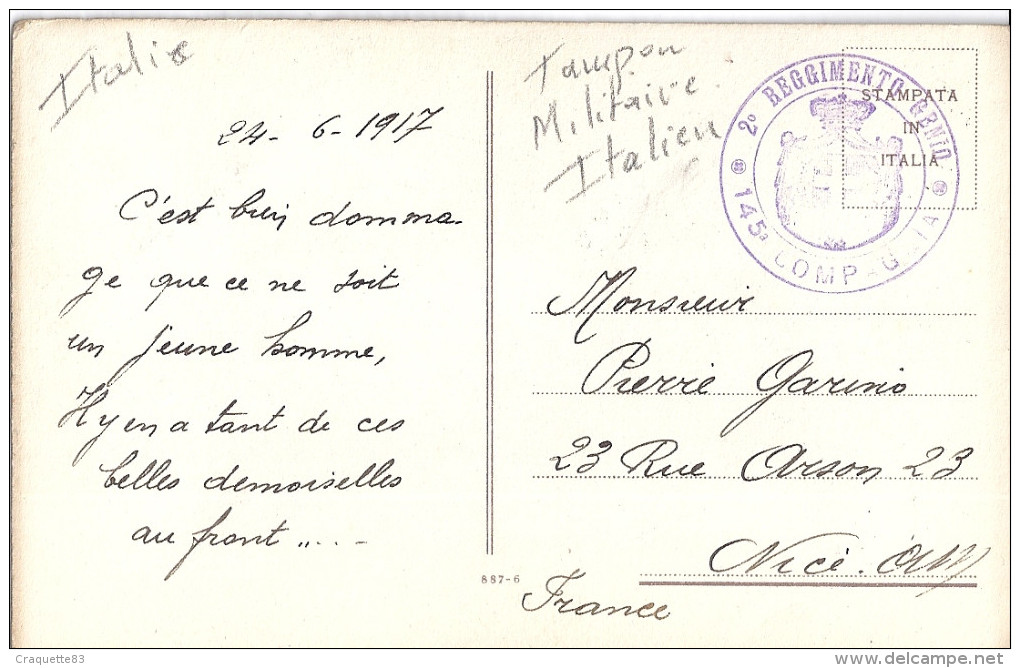 Italie
24-6-1917
C'est bien domma-
ge que ce ne soit
un jeune homme,
Il y en a tant de ces
belles demoiselles
au front .....
Tampon
Militaire
Italien
2º REGGIMENTO GENIO
145ª COMPAGNIA
STAMPATA
IN
ITALIA
Monsieur
Pierre Garino
23 Rue Arson 23
Nice. (AM)
France
887-6
Craquette83
www.delcampe.net